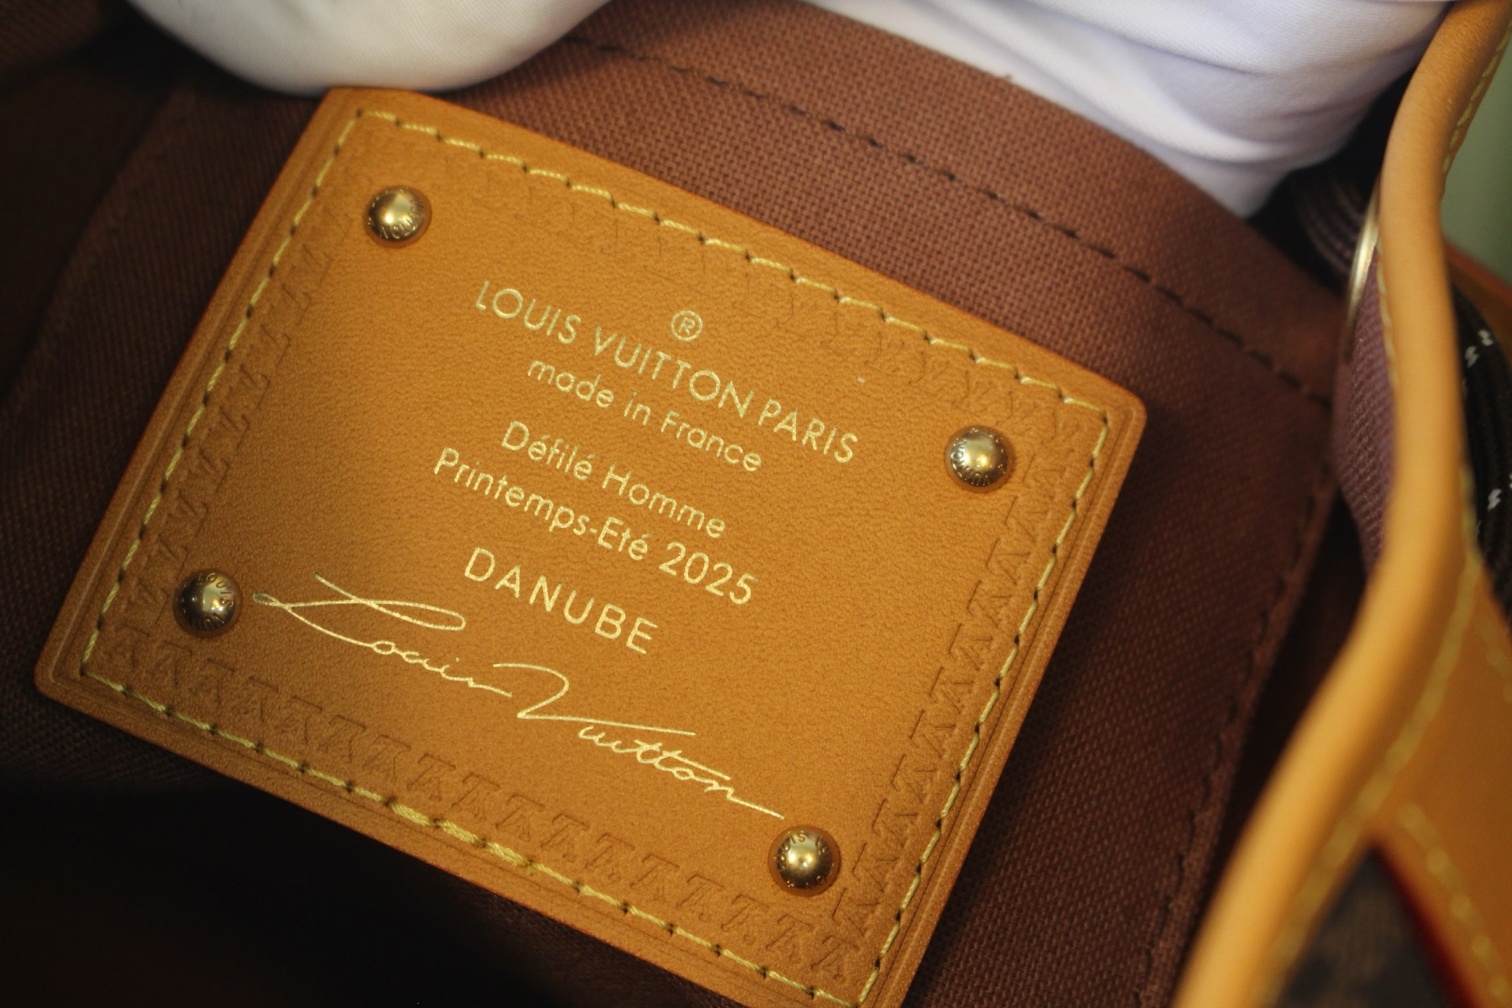 ®
LOUIS VUITTON PARIS
made in France
Défilé Homme
Printemps-Eté 2025
DANUBE
Louis Vuitton